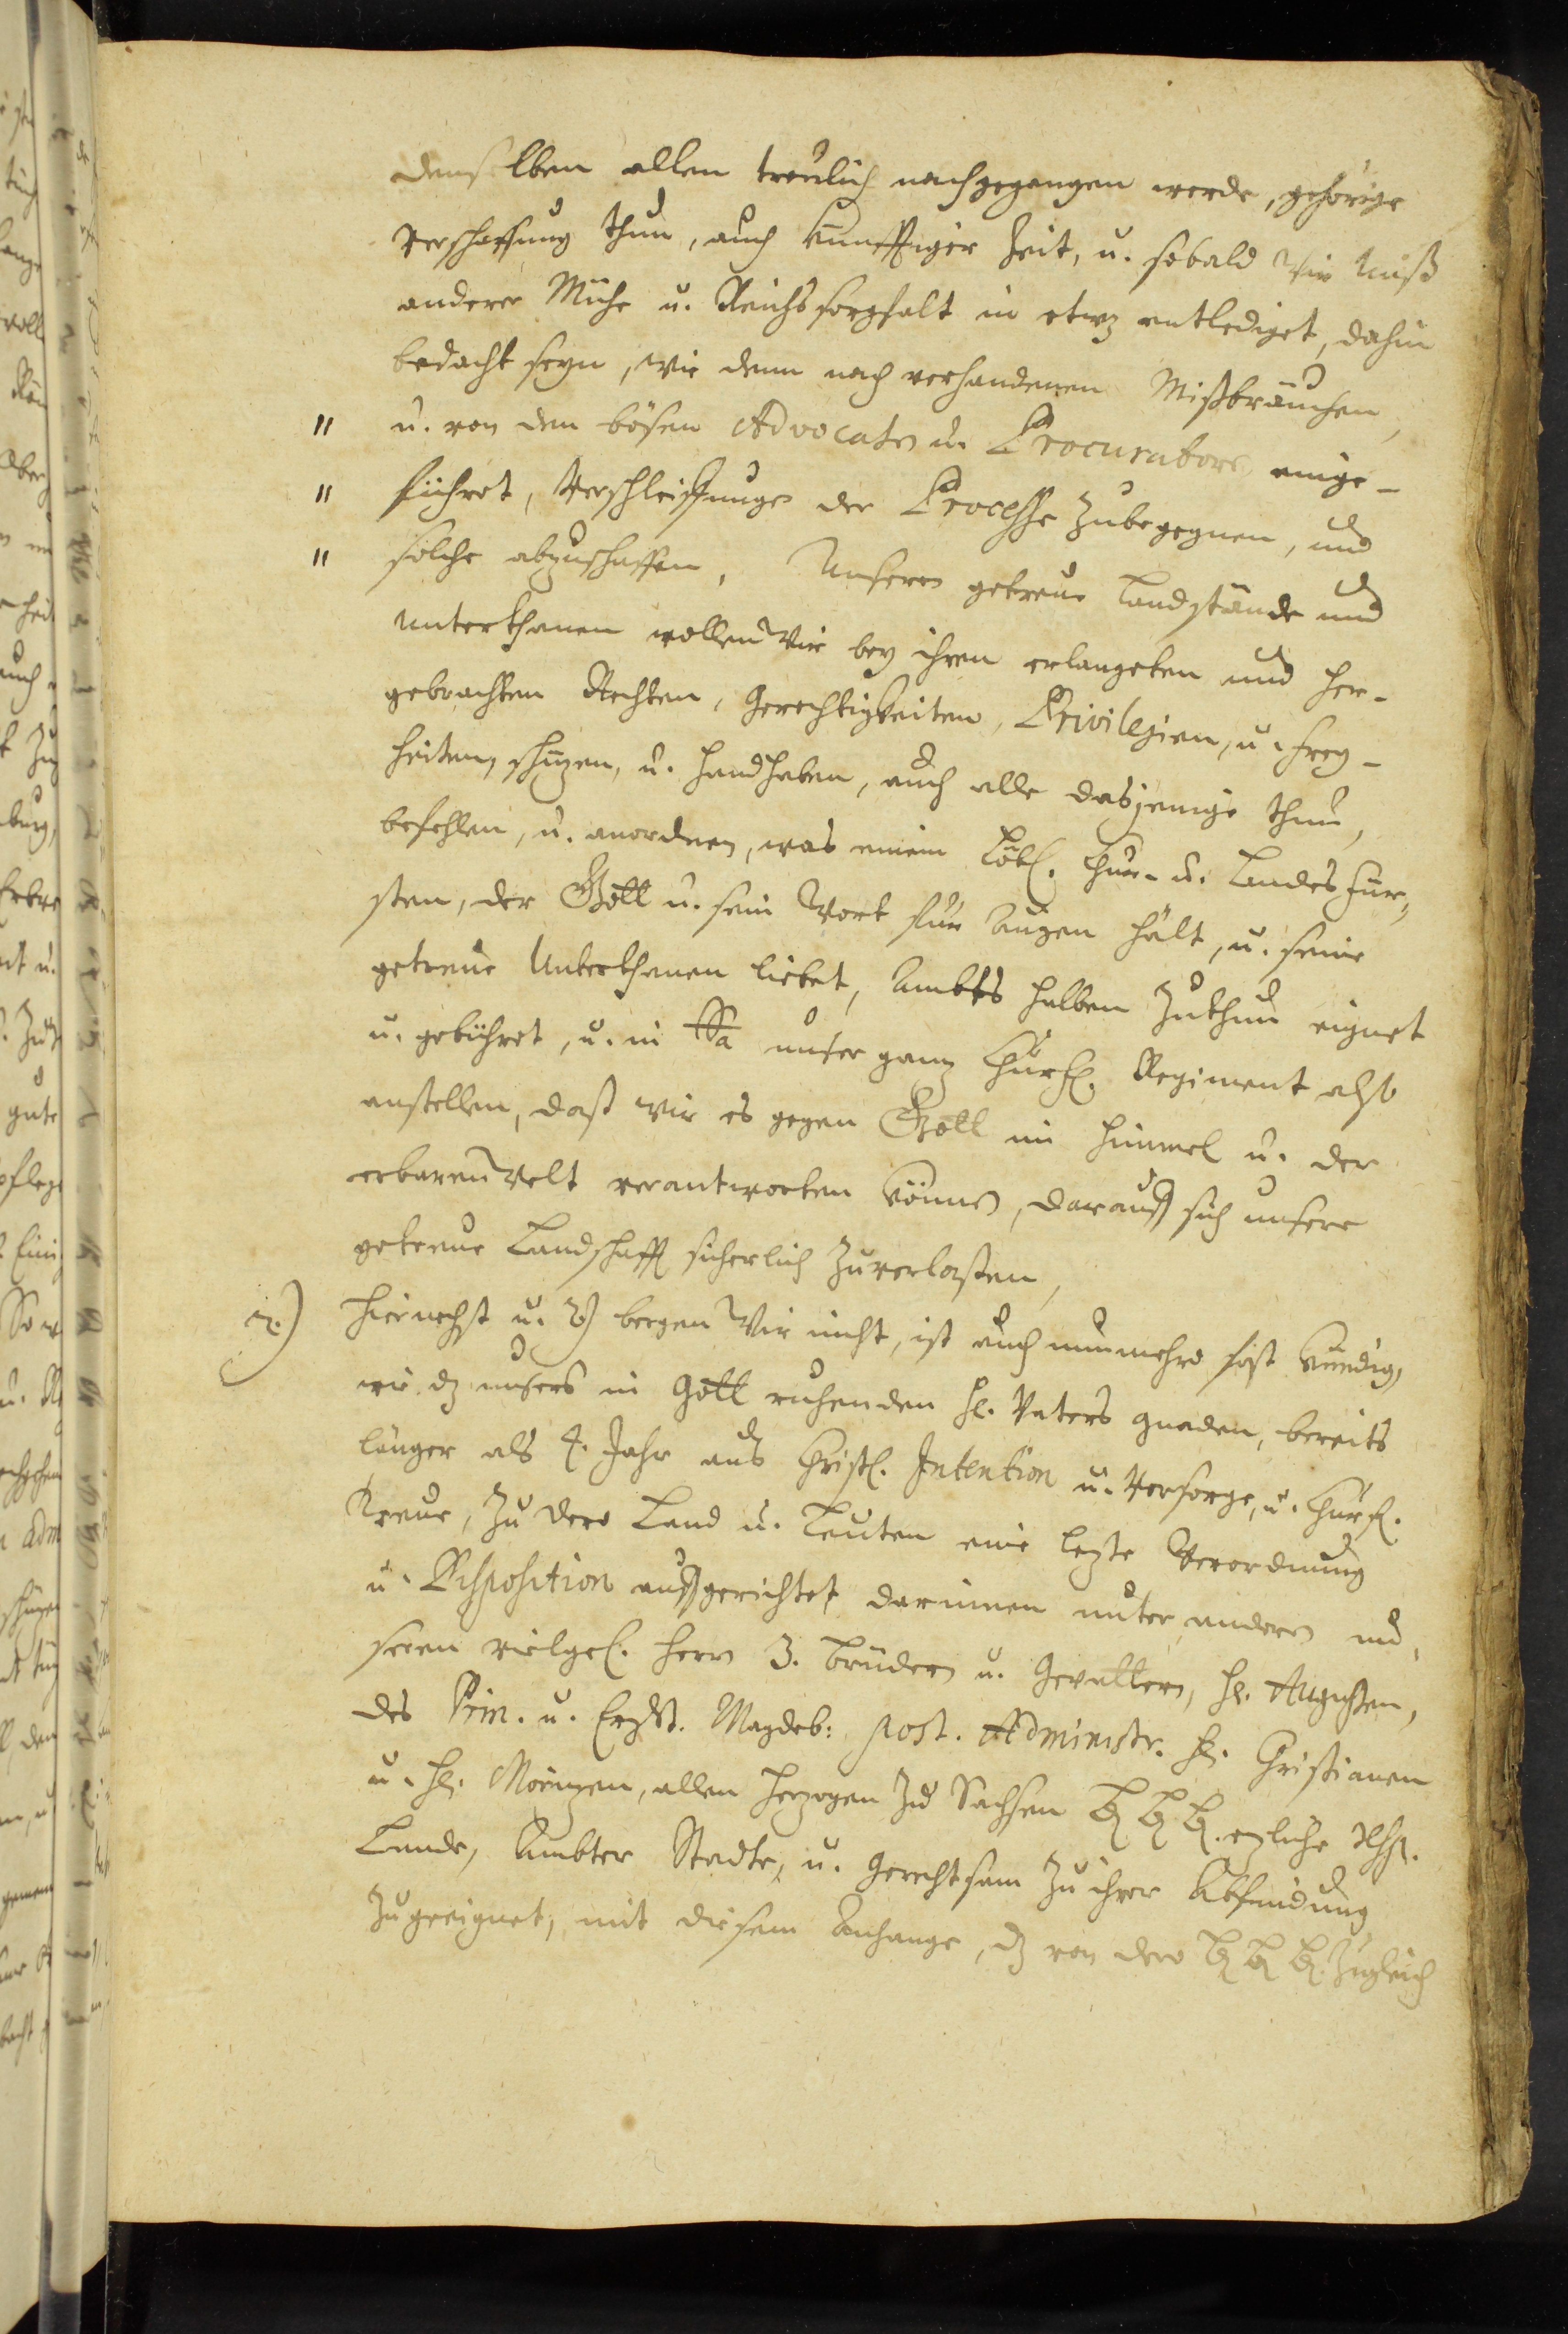 denselben allen treulich nachgegangen werde, gehörige
Verschaffung thun, auch künfftiger Zeit, u. sobald Wir Unß
anderer Mühe u. Reichssorgfalt in etwz entlediget, dahin
bedacht seyn, wie denn noch verhandenen Mißbräuchen,
" u. von den bösen Advocaten u. Procuratore einge-
" führet, Verschleiffunge der Processe zubegegnen, und
" solche abzuschaffen, Unsere getreue Landstände und
Unterthanen wollen Wir bey ihren erlangeten und her-
gebrachten Rechten, Gerechtigkeiten, Privilegien, u. Frey-
heiten, schüzen, u. handhaben, auch alle dasjenige thun,
befehlen, u. anordnen, was einem Löbl. Chur- u. Landes Für-
sten, der Gott u. sein Wort für Augen hält, u. seine
getreue Unterthanen liebet, Ambts halben zuthun eignet
u. gebühret, u. in Sa unser ganz Churfl. Regiment also
anstellen, daß wir es gegen Gott im Himmel u. der
erbaren Welt verantworten können, darauff sich unsere
getreue Landschafft sicherlich zuverlaßen,
2.) Hiernechst u. 2) bergen Wir nicht, ist auch nunmehro fast kündig,
wie dz unsers in Gott ruhenden H. Vaters Gnaden, bereits
länger als 4. Jahr aus Christl. Intention u. Vorsorge, u. Churfl.
Treue, zu dero Land u. Leuten eine lezte Verordnung
u. Disposition auffgerichtet darinnen unter andern un-
sern vielgel. Herrn 3. Brüdern u. Gevattern, H. Augusten,
des Prim. u. Erzst. Magdeb: post. Administr. H. Christianen
u. H. Morizen, allen Herzogen zu Sachsen LL LL LL. ezliche
Lande, Ambter Städte, u. Gerechtsam zu ihrer Abfindung
zugeeignet, mit diesem Anhange, dz von dero LL LL LL. zugleich